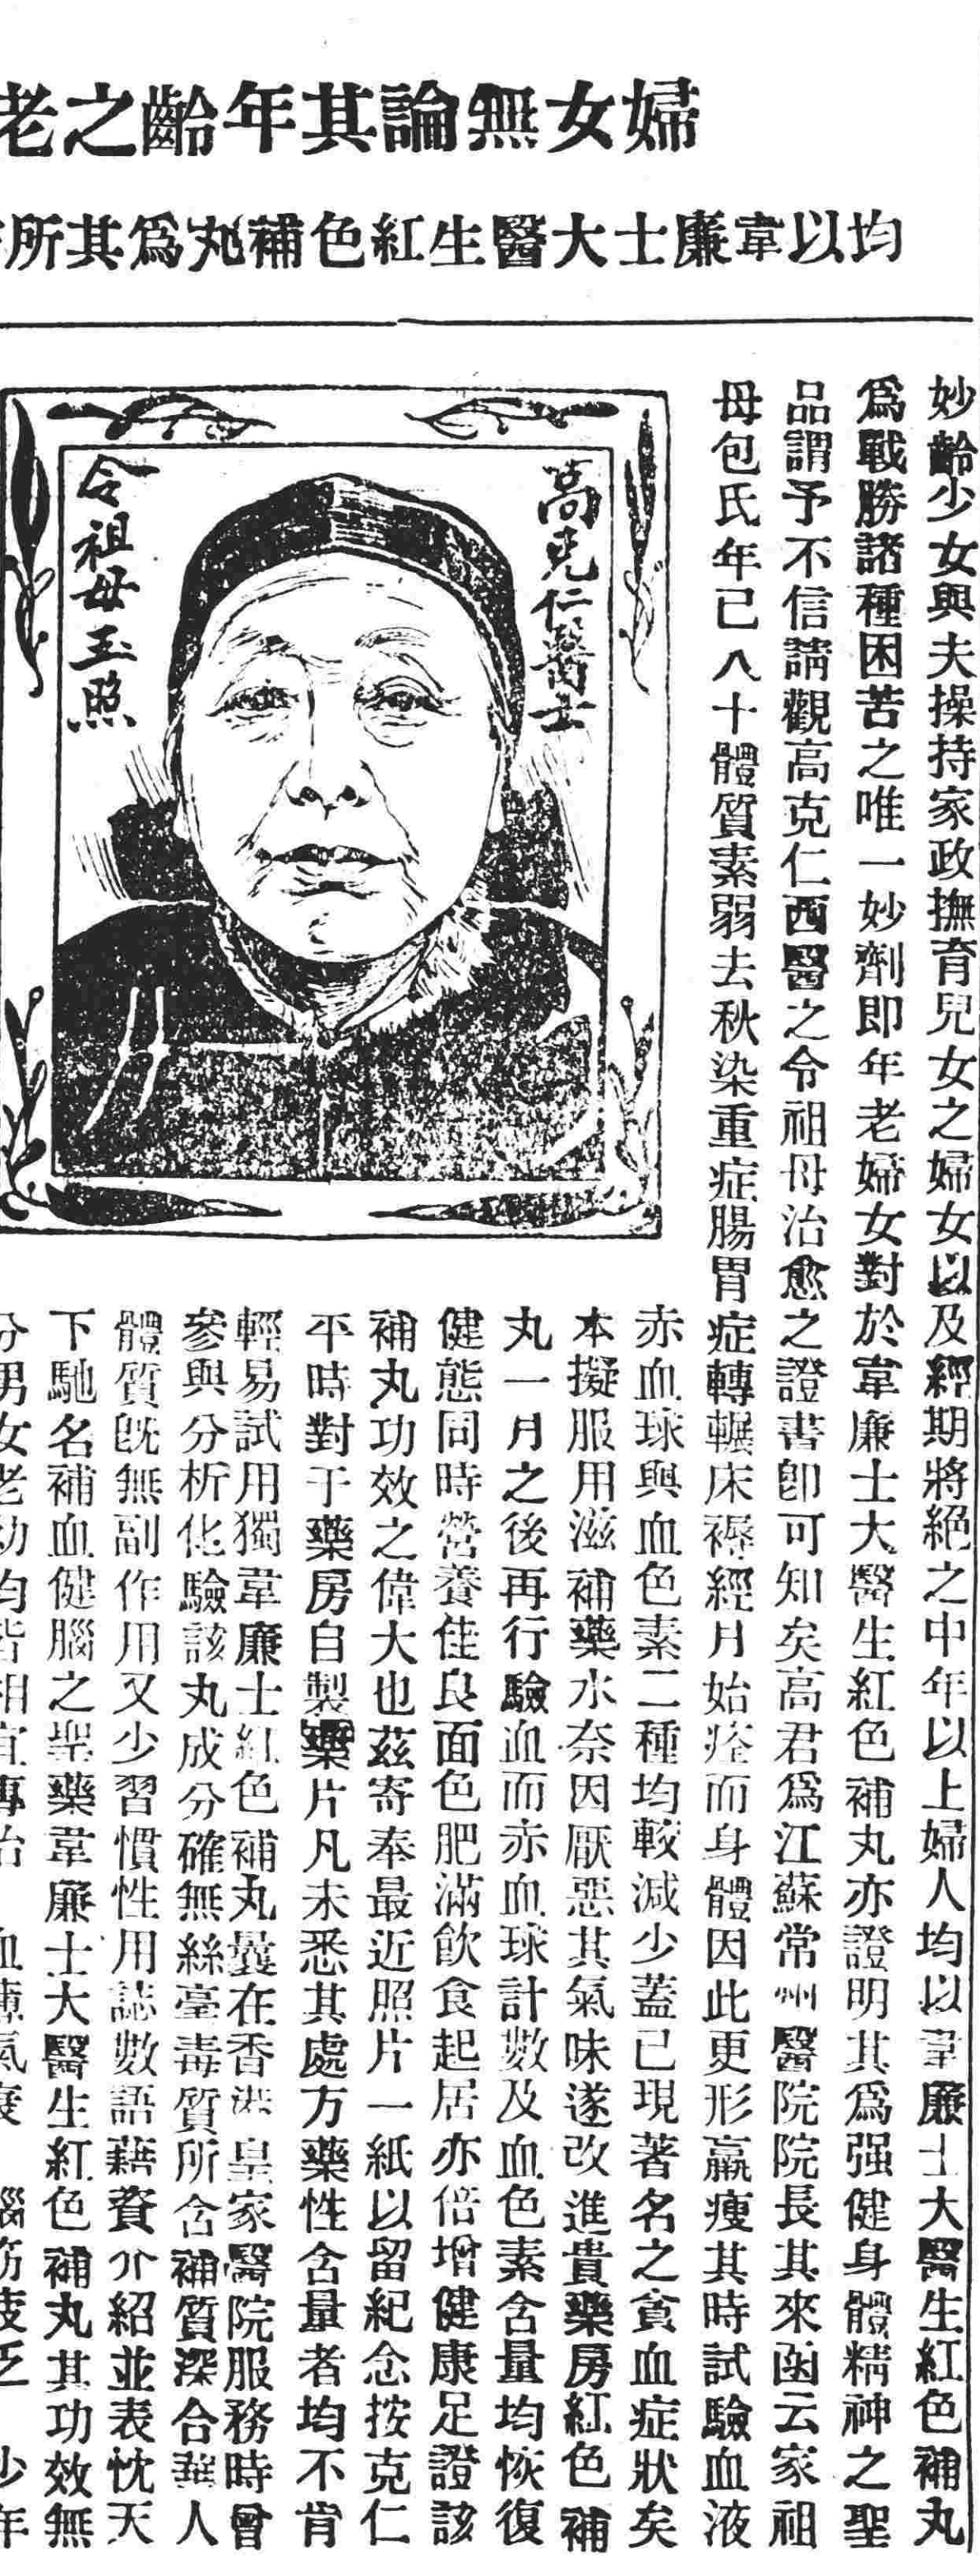 婦女無論其年齡之老
均以韋廉士大醫生紅色補丸爲其所
妙齡少女與夫操持家政撫育兒女之婦女以及經期將絕之中年以上婦人均以韋廉士大醫生紅色補丸
爲戰勝諸種困苦之唯一妙劑即年老婦女對於韋廉士大醫生紅色補丸亦證明其爲强健身體精神之聖
品謂予不信請觀高克仁西醫之令祖母治愈之證書卽可知矣高君爲江蘇常州醫院院長其來函云家祖
母包氏年已八十體質素弱去秋染重症腸胃症轉輾床褥經月始痊而身體因此更形羸瘦其時試驗血液
高克仁醫士
令祖母玉照
赤血球與血色素二種均較減少蓋已現著名之貧血症狀矣
本擬服用滋補藥水奈因厭惡其氣味遂改進貴藥房紅色補
丸一月之後再行驗血而赤血球計數及血色素含量均恢復
健態同時營養佳良面色肥滿飲食起居亦倍增健康足證該
補丸功效之偉大也茲寄奉最近照片一紙以留紀念按克仁
平時對于藥房自製藥片凡未悉其處方藥性含量者均不肯
輕易試用獨韋廉士紅色補丸曩在香港皇家醫院服務時曾
參與分析化驗該丸成分確無絲毫毒質所含補質深合華人
體質旣無副作用又少習慣性用誌數語藉資介紹並表忱天
下馳名補血健腦之聖藥韋廉士大醫生紅色補丸其功效無
分男女老幼均皆相宜專治 血薄氣衰 腦筋疲乏 少年